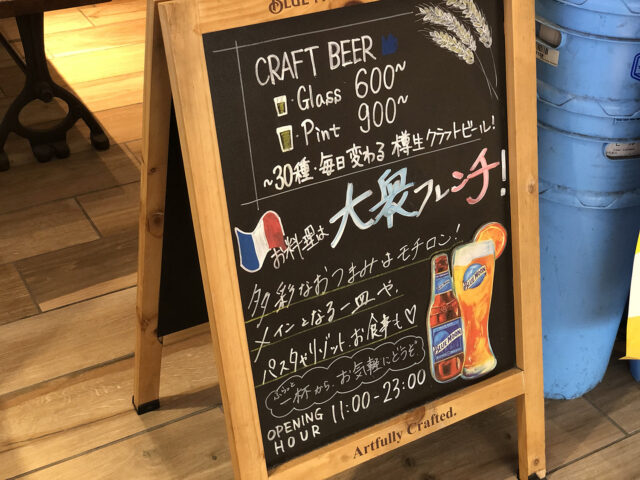 CRAFT BEER
・Glass 600~
・Pint 900~
~30種・毎日変わる 樽生クラフトビール!
お料理は 大衆フレンチ!
多彩なおつまみはモチロン!
メインとなる一皿や、
パスタやリゾット、お食事も♡
ふらっと一杯から、お気軽にどうぞ!
BLUE MOON
BLUE MOON
OPENING HOUR 11:00-23:00
Artfully Crafted.